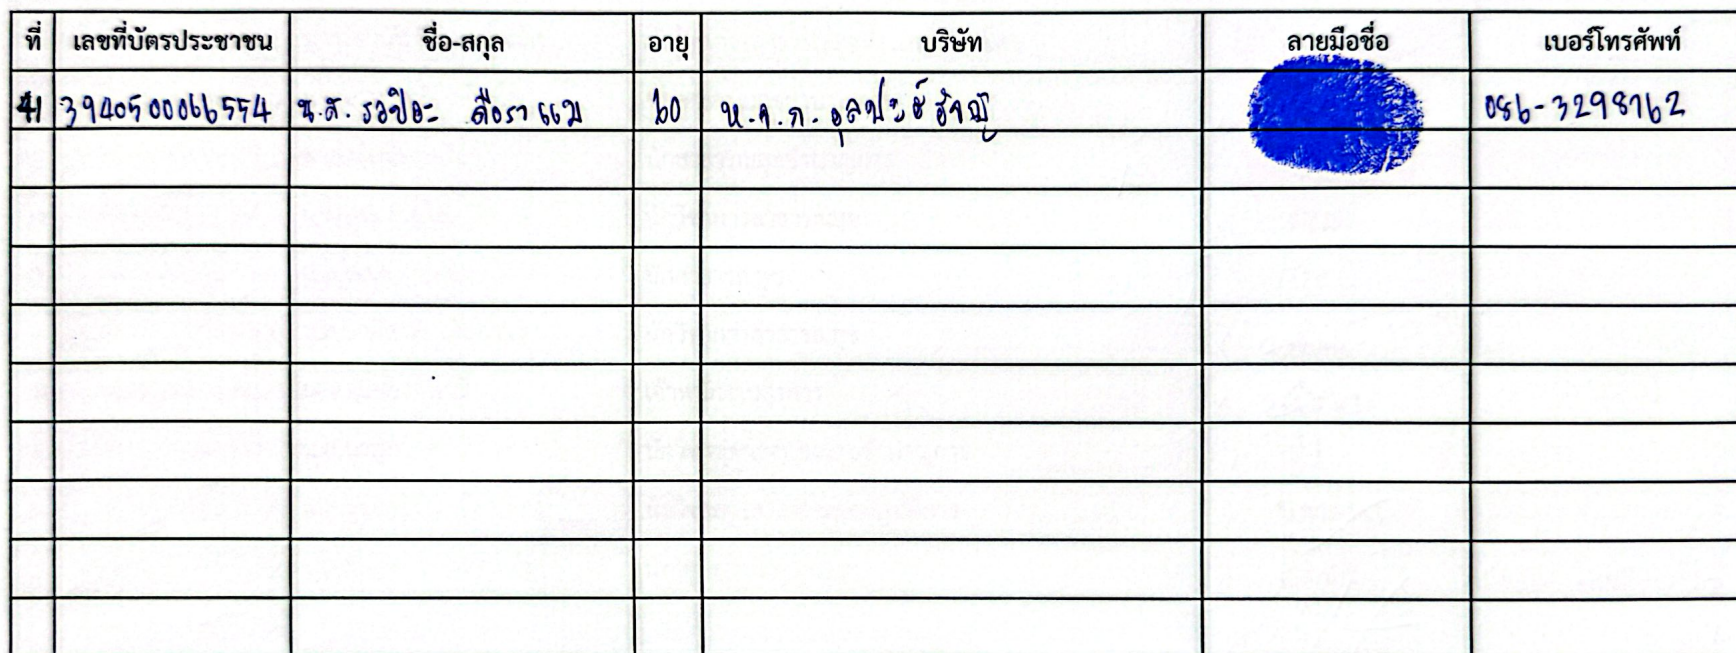 ที่ เลขที่บัตรประชาชน ชื่อ-สกุล อายุ บริษัท ลายมือชื่อ เบอร์โทรศัพท์
41 3940500066554 น.ส. รอปิอะ ดือราแม 60 ห.จ.ก. 086-3298762